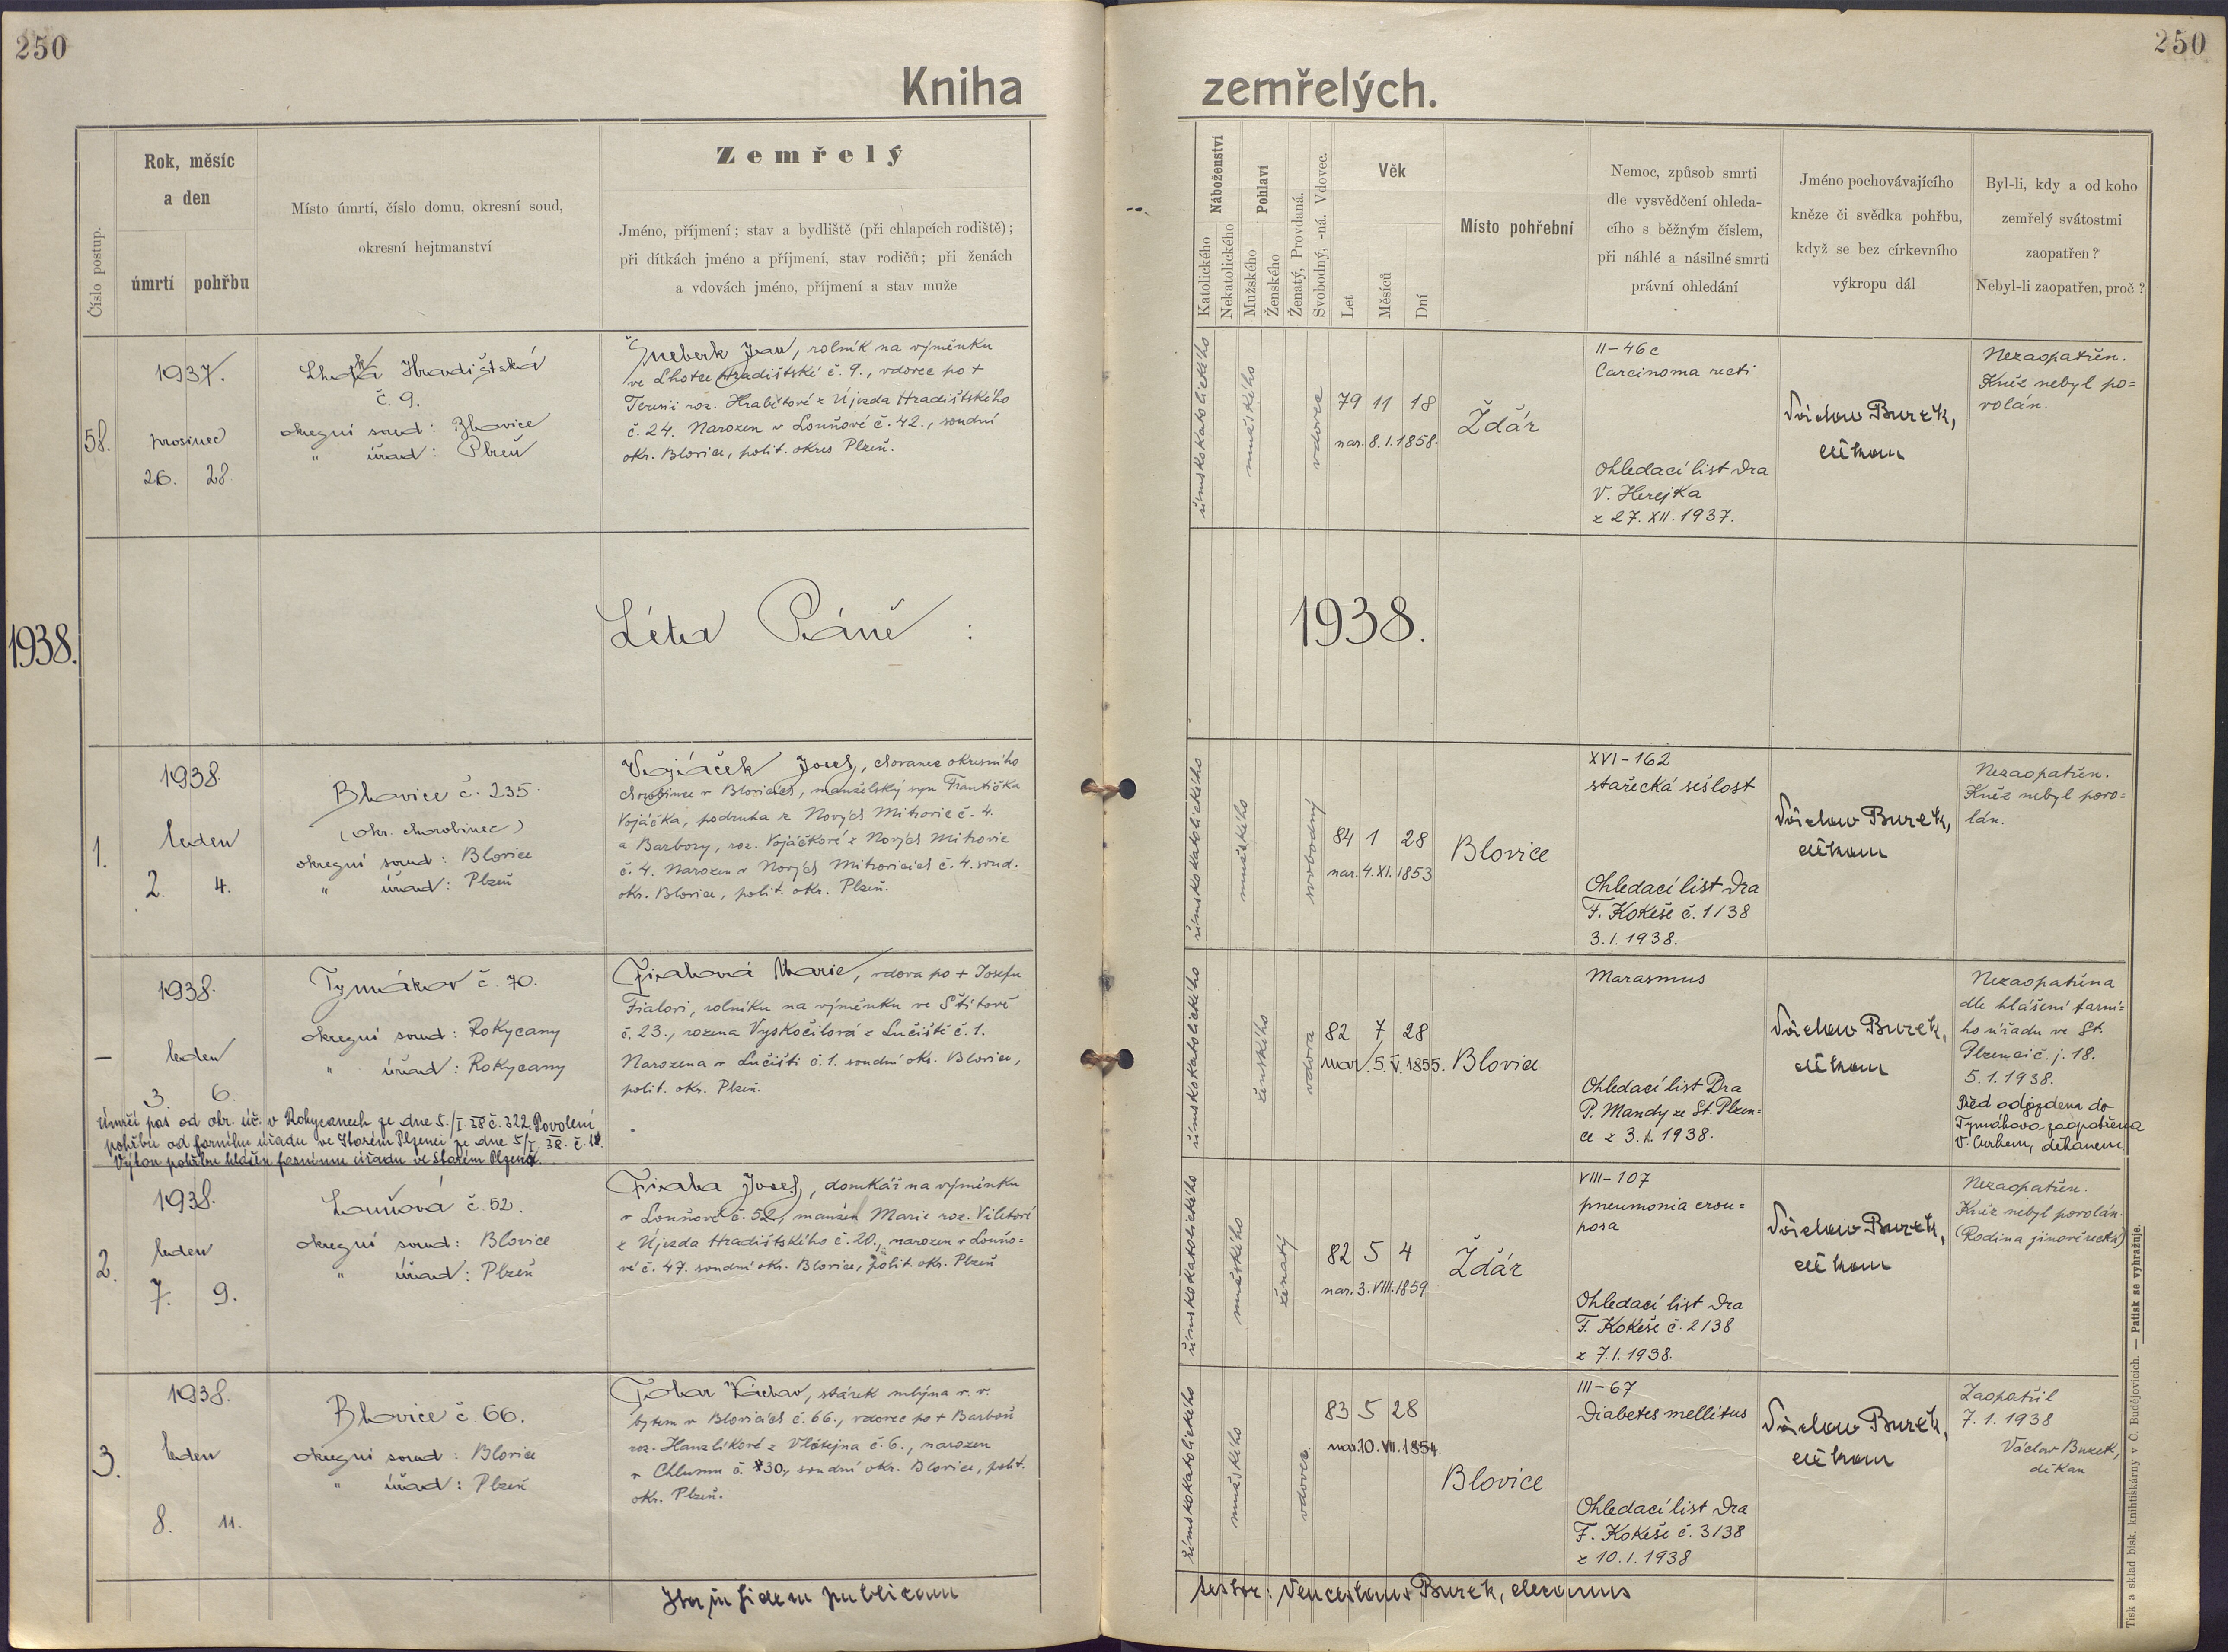 250
250
Kniha zemřelých.
Číslo postup.
Rok, měsíc
a den
úmrtí pohřbu
Místo úmrtí, číslo domu, okresní soud,
okresní hejtmanství
Zemřelý
Jméno, příjmení; stav a bydliště (při chlapcích rodiště);
při dítkách jméno a příjmení, stav rodičů; při ženách
a vdovách jméno, příjmení a stav muže
Náboženství
Katolického
Nekatolického
Pohlaví
Mužského
Ženského
Ženatý, Provdaná.
Svobodný, -ná. Vdovec.
Věk
Let
Měsíců
Dní
Místo pohřební
Nemoc, způsob smrti
dle vysvědčení ohleda-
cího s běžným číslem,
při náhlé a násilné smrti
právní ohledání
Jméno pochovávajícího
kněze či svědka pohřbu,
když se bez církevního
výkropu dál
Byl-li, kdy a od koho
zemřelý svátostmi
zaopatřen?
Nebyl-li zaopatřen, proč?
58.
1937.
prosinec
26. 28.
Lhotka Hradištská
č. 9.
okresní soud: Blovice
" úřad: Plzeň
Šneberk Jan, rolník na výměnku
ve Lhotce Hradištské č. 9., vdovec po +
Terezii roz. Hrabětové z Újezda Hradištského
č. 24. Narozen v Louňové č. 42., soudní
okr. Blovice, polit. okres Plzeň.
římskokatolického
mužského
vdovec
79 11 18
nar. 8.1.1858.
Ždár
II-46c
Carcinoma recti
Ohledací list Dra
V. Herejka
z 27. XII. 1937.
Václav Burek,
děkan
Nezaopatřen.
Kněz nebyl po=
volán.
1938.
Léta Páně :
1938.
1.
1938
leden
2. 4.
Blovice č. 235.
(okr. chorobinec)
okresní soud: Blovice
" úřad: Plzeň
Vojáček Josef, chovanec okresního
chorobince v Blovicích, manželský syn Františka
Vojáčka, podruha z Nových Mitrovic č. 4.
a Barbory, roz. Vojáčkové z Nových Mitrovic
č. 4. Narozen v Nových Mitrovicích č. 4. soud.
okr. Blovice, polit. okr. Plzeň.
římskokatolického
mužského
svobodný
84 1 28
nar. 4. XI. 1853
Blovice
XVI-162
stařecká sešlost
Ohledací list Dra
F. Kokeše č. 1/38
3.1.1938.
Václav Burek,
děkan
Nezaopatřen.
Kněz nebyl povo=
lán.
—
1938.
leden
3. 6.
Tymákov č. 70.
okresní soud: Rokycany
" úřad: Rokycany
Fialová Marie, vdova po + Josefu
Fialovi, rolníku na výměnku ve Štítově
č. 23., rozena Vyskočilová z Lučiště č. 1.
Narozena v Lučišti č. 1. soudní okr. Blovice,
polit. okr. Plzeň.
Úmrčí pas od okr. úř. v Rokycanech ze dne 5./I. 38 č. 322. Povolení
pohřbu od farního úřadu ve Starém Plzenci ze dne 5/I. 38. č. 18.
Výkon pohřbu hlášen farnímu úřadu ve Starém Plzenci.
římskokatolického
ženského
vdova
82 7 28
nar. 5. V. 1855.
Blovice
Marasmus
Ohledací list Dra
P. Mandy ze St. Plzen=
ce z 3.1.1938.
Václav Burek,
děkan
Nezaopatřena
dle hlášení farní=
ho úřadu ve St.
Plzenci č. j. 18.
5.1.1938.
Před odjezdem do
Tymákova zaopatřena
děkanem
2.
1938.
leden
7. 9.
Louňová č. 52.
okresní soud: Blovice
" úřad: Plzeň
Fiala Josef, domkář na výměnku
v Louňové č. 52, manžel Marie roz. Viletové
z Újezda Hradištského č. 20., narozen v Louňo=
vé č. 47. soudní okr. Blovice, polit. okr. Plzeň
římskokatolického
mužského
ženatý
82 5 4
nar. 3. VIII. 1859
Ždár
VIII-107
pneumonia crou=
posa
Ohledací list Dra
F. Kokeše č. 2/38
z 7.1.1938.
Václav Burek,
děkan
Nezaopatřen.
Kněz nebyl povolán.
(Rodina jinověrecká)
3.
1938.
leden
8. 11.
Blovice č. 66.
okresní soud: Blovice
" úřad: Plzeň
Václav, stárek mlýna v. v.
bytem v Blovicích č. 66., vdovec po + Barboře
roz. Hanzlíkové z Vlčtejna č. 6., narozen
v Chlumu č. 30., soudní okr. Blovice, polit.
okr. Plzeň.
římskokatolického
mužského
vdovec
83 5 28
nar. 10. VII. 1854.
Blovice
III-67
Diabetes mellitus
Ohledací list Dra
F. Kokeše č. 3/38
z 10.1.1938
Václav Burek,
děkan
Zaopatřil
7.1.1938
Václav Burek,
děkan
Ita in fidem publicam
testor: Venceslaus Burek, decanus
Tisk a sklad bisk. knihtiskárny v Č. Budějovicích. — Patisk se vyhražuje.